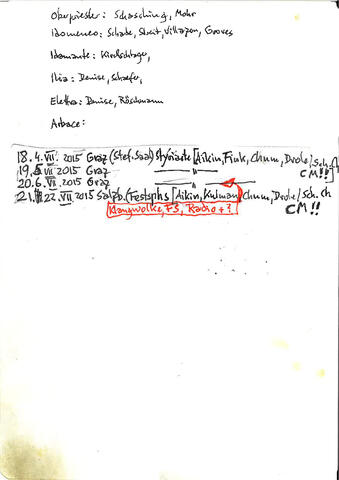 Oberpriester: Schasching, Mohr
Idomeneo: Schade, Streit, Villazon, Groves
Idamante: Kirchschlager,
Ilia: Denise, Schaefer,
Elettra: Denise, Röschmann
Arbace:
18. 4. VII. 2015 Graz (Stef. Saal) Styriarte [Aikin, Fink, Chum, Drole / Sch. Ch
19. 5 VII 2015 Graz — " — CM!!]
20. 6. VII 2015 Graz — " —
21. 22. VII. 2015 Salzb. (Festsphs [Aikin, Kulman] Chum, Drole / Sch. Ch
Klangwolke, FS, Radio + ? CM!!